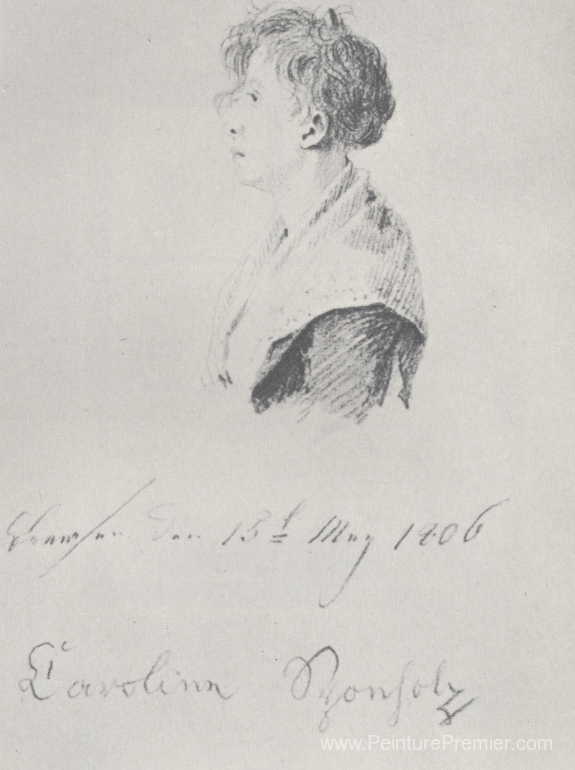 Breesen den 13t May 1806
Caroline Sponholz
www.PeinturePremier.com